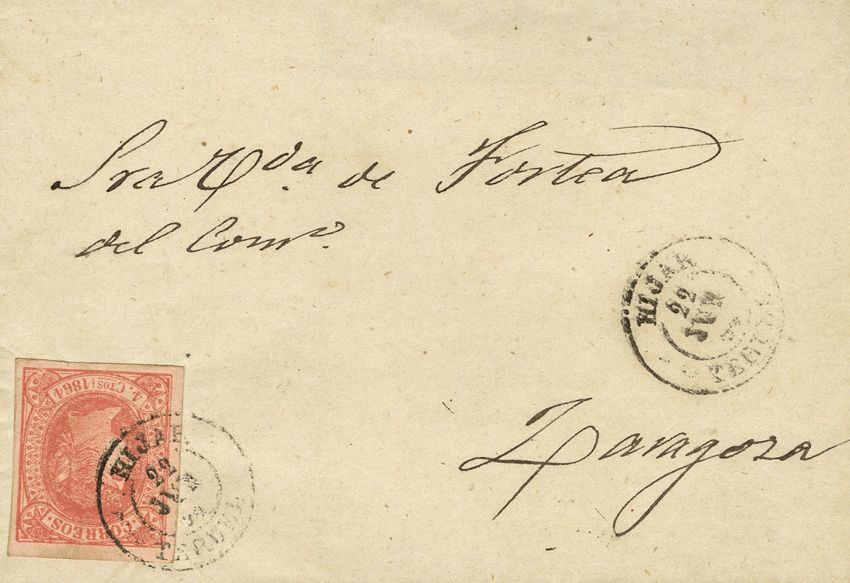 Sra Vda. de Fortea
del Comº.
HIJAR
22
JUN
TERUEL
Zaragoza
4 CTOS 1864
CORREOS
HIJAR
22
JUN
TERUEL